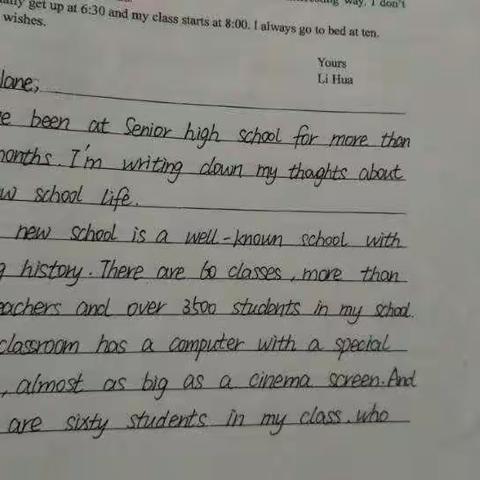 get up at 6:30 and my class starts at 8:00. I always go to bed at ten.
way. I don't
wishes.
Yours
Li Hua
been at Senior high school for more than
I'm writing down my thaghts about
school life.
new school is a well-known school with
history. There are 60 classes, more than
and over 3500 students in my school.
classroom has a computer with a special
, almost as big as a cinema screen. And
are sixty students in my class. who